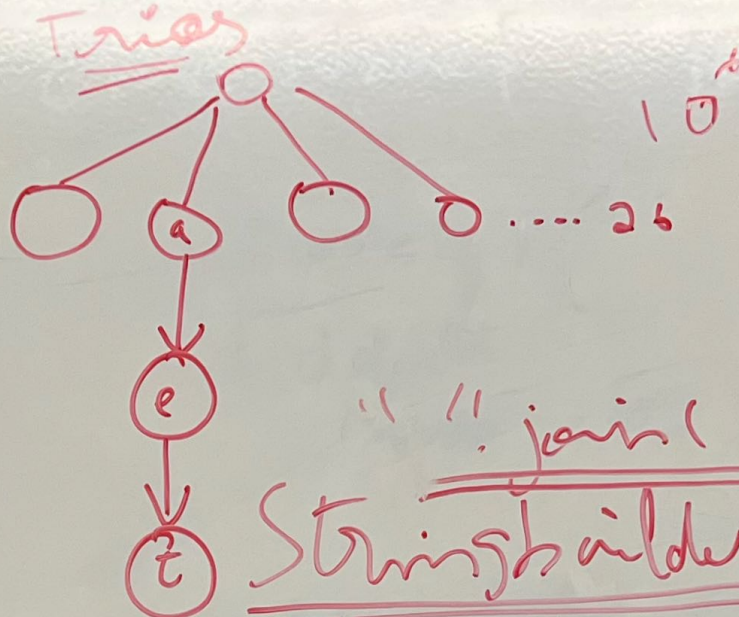 Tries
10
a
.... 26
e
" ".join(
t
Stringbuilde